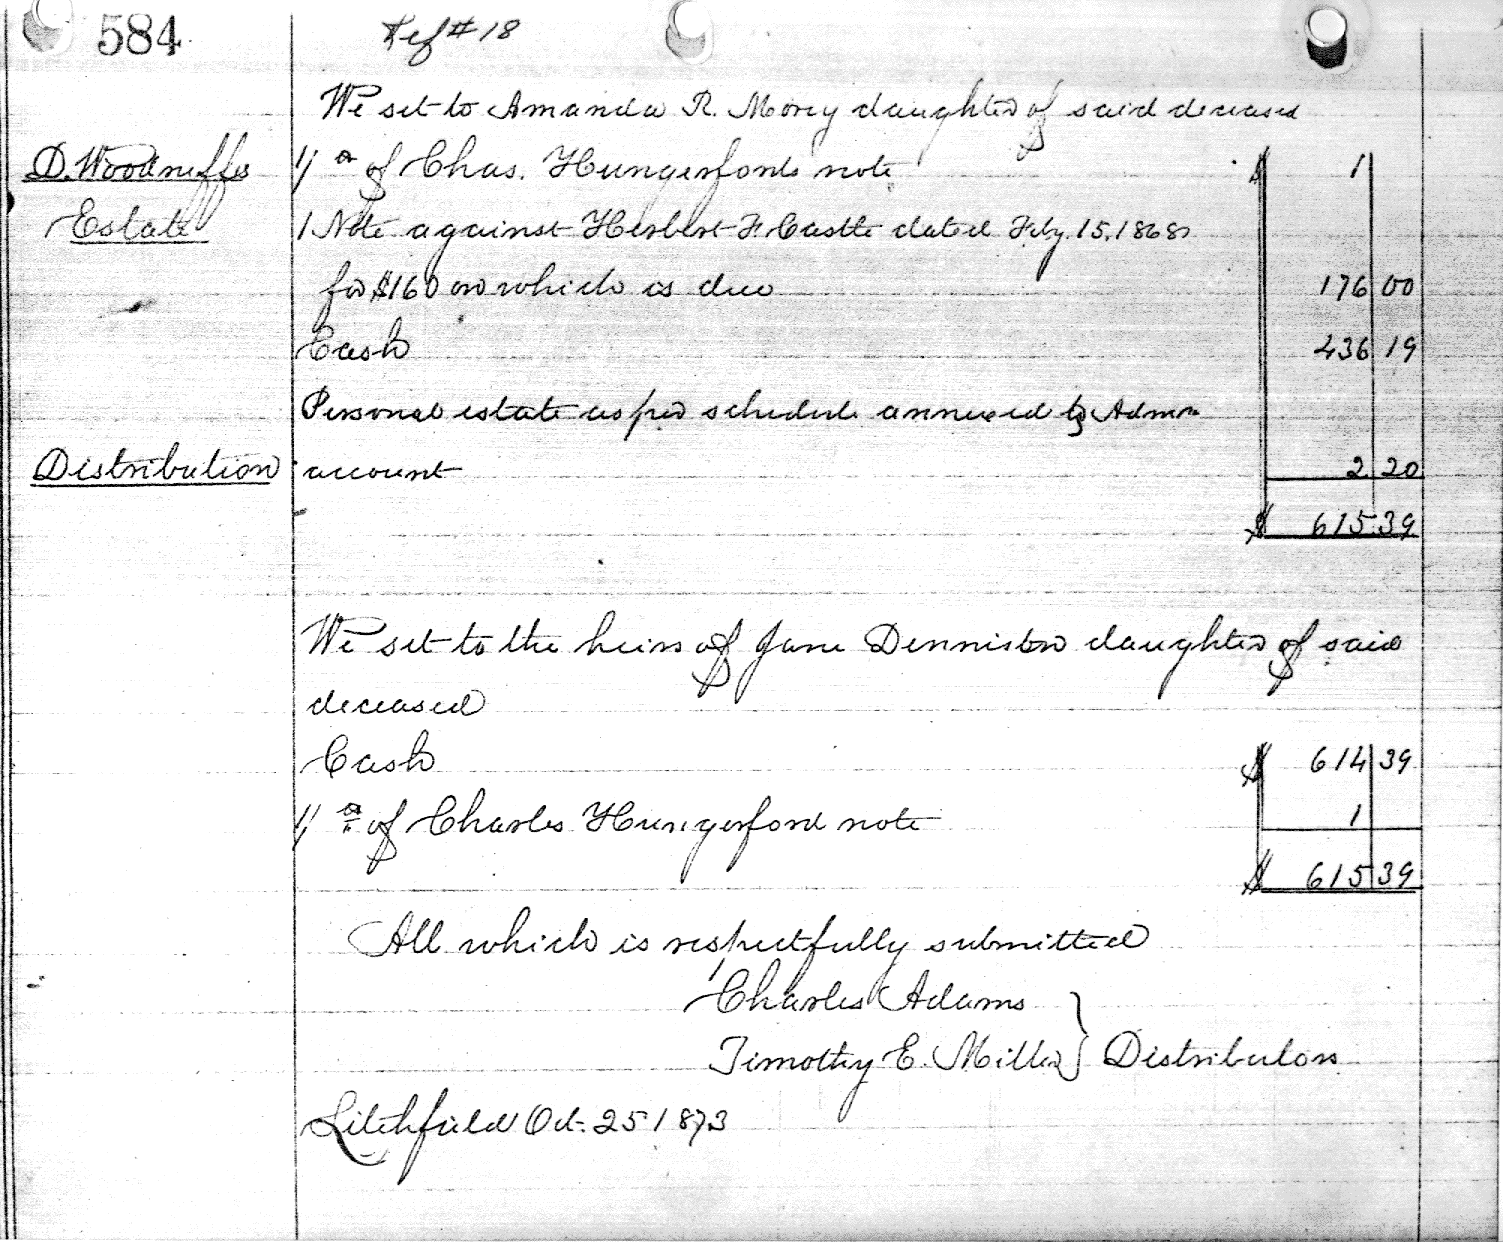 584
Ref # 18
We set to Amanda R. Morey daughter of said deceased
D. Woodruffs
of Chas. Hungerfords note $ 1
Estate
1 Note against Herbert F. Castle dated Feby. 15, 1868
for $160 on which is due 176 00
Cash 436 19
Personal estate as per schedule annexed to Admrs
Distribution
account 2 20
$ 615.39
We set to the heirs of Jane Denniston daughter of said
deceased
Cash $ 614 39
of Charles Hungerford note 1
$ 615 39
All which is respectfully submitted
Charles Adams }
Timothy E. Miller } Distributors
Litchfield Oct. 25 1873